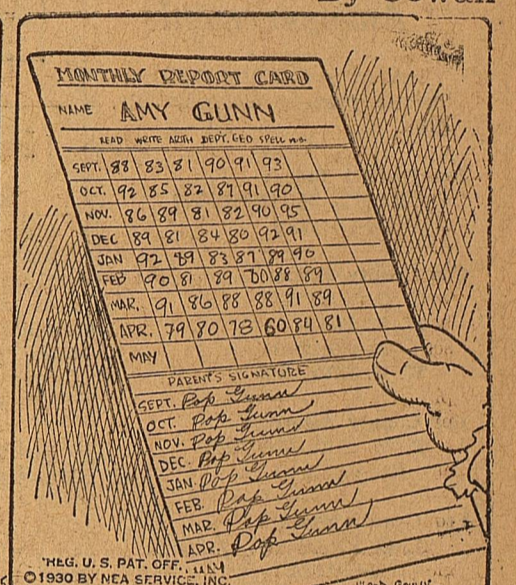 By Cowan
MONTHLY REPORT CARD
NAME AMY GUNN
READ WRITE ARITH DEPT. GEO SPELL
SEPT. 88 83 81 90 91 93
OCT. 92 85 82 87 91 90
NOV. 86 89 81 82 90 95
DEC 89 81 84 80 92 91
JAN 92 89 83 87 89 90
FEB 90 81 89 80 88 89
MAR. 91 86 88 88 91 89
APR. 79 80 78 60 84 81
MAY
PARENT'S SIGNATURE
SEPT. Pop Gunn
OCT. Pop Gunn
NOV. Pop Gunn
DEC. Pop Gunn
JAN. Pop Gunn
FEB. Pop Gunn
MAR. Pop Gunn
APR. Pop Gunn
MAY
REG. U. S. PAT. OFF.
©1930 BY NEA SERVICE, INC.